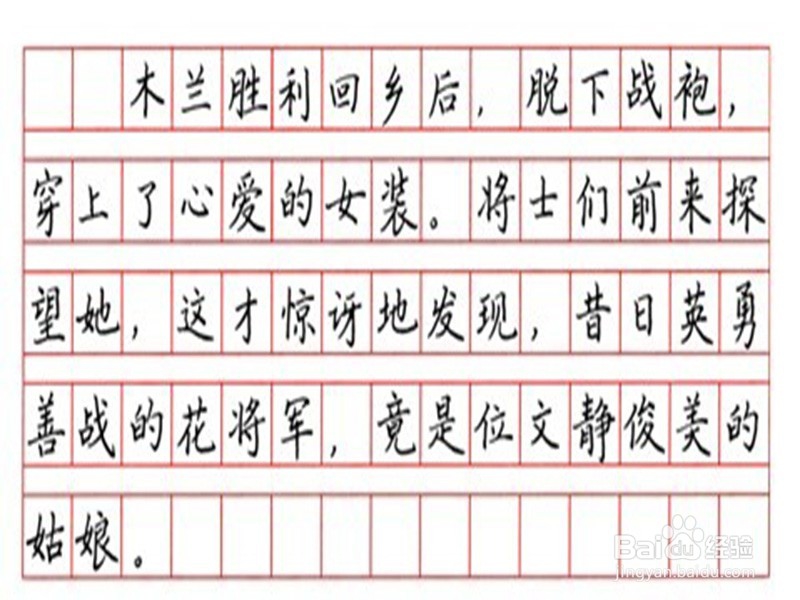 木兰胜利回乡后，脱下战袍，
穿上了心爱的女装。将士们前来探
望她，这才惊讶地发现，昔日英勇
善战的花将军，竟是位文静俊美的
姑娘。
Baidu经验
jingyan.baidu.com